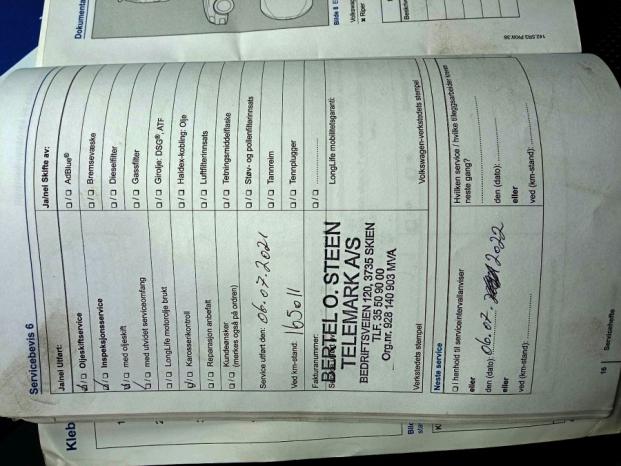 Servicebevis 6
Ja/nei Utført:
☑/☐ Oljeskiftservice
☑/☐ Inspeksjonsservice
☑/☐ med oljeskift
☑/☐ med utvidet serviceomfang
☐/☐ LongLife motorolje brukt
☑/☐ Karosserikontroll
☐/☐ Reparasjon anbefalt
Kundeønsker
☐/☐ (merkes også på ordren)
Service utført den: 06.07.2021
Ved km-stand: 165011
Fakturanummer:
BERTEL O. STEEN
TELEMARK A/S
BEDRIFTSVEIEN 120, 3735 SKIEN
TLF. 35 50 90 00
Org.nr. 928 140 903 MVA
Verkstedets stempel
Ja/nei Skifte av:
☐/☐ AdBlue®
☐/☐ Bremsevæske
☐/☐ Dieselfilter
☐/☐ Gassfilter
☐/☐ Girolje: DSG®, ATF
☐/☐ Haldex-kobling: Olje
☐/☐ Luftfilterinnsats
☐/☐ Tetningsmiddelflaske
☐/☐ Støv- og pollenfilterinnsats
☐/☐ Tannreim
☐/☐ Tennplugger
☐/☐
LongLife mobilitetsgaranti:
Volkswagen-verkstedets stempel
Neste service
☐ I henhold til serviceintervallanviser
eller
den (dato): 06.07. 2022
eller
ved (km-stand):
Hvilken service / hvilke tilleggsarbeider
neste gang?
den (dato):
eller
ved (km-stand):
16 Servicehefte
Dokumenta
142.5R3.PKW.38
Kleb